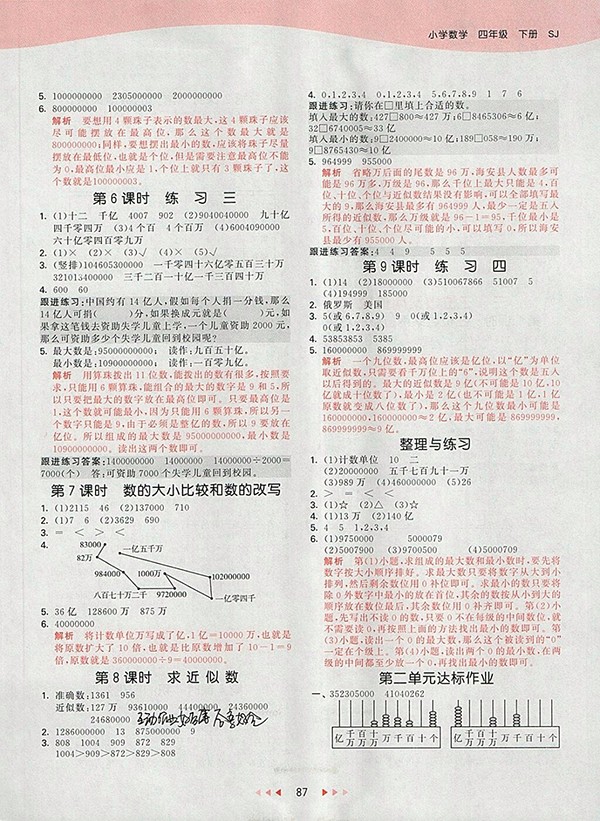 小学数学 四年级 下册 SJ
5. 1000000000 2305000000 2000000000
6. 800000000 100000003
解析 要想用4颗珠子表示的数最大,这4颗珠子应该
尽可能摆放在最高位,那么这个数最大就是
800000000;同样,要想摆出最小的数,应该将珠子尽量
摆放在最低位,也就是个位,但是需要注意最高位不能
为0,最高位最小应是1,个位上就只有3颗珠子了,这
个数就是100000003。
第6课时 练习三
1. (1)十二 千亿 4007 902 (2)9040040000 九十亿
四千零四万 (3)4个百 4个百万 (4)6004090000
六十亿零四百零九万
2. (1)× (2)× (3)√ (4)× (5)√
3. (竖排)104605300000 一千零四十六亿零五百三十万
321013400000 三千二百一十亿一千三百四十万
4. 600 60
跟进练习:中国约有14亿人,假如每个人捐一分钱,那么
14亿人可捐( )分,如果换成元就是( )元,如
果拿这笔钱去资助失学儿童上学,一个儿童资助2000元,
那么可资助多少个失学儿童回到校园?
5. 最大数是:95000000000; 读作:九百五十亿。
最小数是:10900000000; 读作:一百零九亿。
解析 用算珠拨出11位数,能拨出的数有很多,按照要
求,只能用6颗算珠,能组合的最大的数字是9和5,所
以只要把最大的数字放在最高位即可。只要最高位是
1,这个数就可能最小,因为只能用6颗算珠,所以另一
个数字只能是9,由于必须是整亿的数,所以9要放在
亿位。所以组成的最大数是95000000000,最小数是
10900000000。读出这两个数即可。
跟进练习答案:1400000000 14000000 14000000÷2000=
7000(个) 答:可资助7000个失学儿童回到校园。
第7课时 数的大小比较和数的改写
1. (1)2115 46 (2)137000 710
2. (1)7 6 (2)3629 690
3. = < > <
4. 83000
一亿五千万
82万
984000 1000万 102000000
八百七十万二千 9720000 一亿零四千
5. 36亿 128600万 875万
6. 40000000
解析 将计数单位万写成了亿,1亿=10000万,也就是
将原数扩大了10倍,也就是比原数增加了10-1=9
倍,原数就是360000000÷9=40000000。
第8课时 求近似数
1. 准确数:1361 956
近似数:127万 93610000 44400000 24360000
24680000
2. 1286000000 13 875000000 9
3. 808 1004 909 872 829
1004>909>872>829>808
4. 0,1,2,3,4 0,1,2,3,4 5,6,7,8,9 1 7 6
跟进练习:请你在□里填上合适的数。
填入最大的数:427□800≈427万;6□8465306≈6亿;
32□6740005≈33亿
填入最小的数:9□2400000≈10亿;189□058≈190万;
9□8765430≈10亿
5. 964999 955000
解析 省略万后面的尾数是96万,海安县人数最多可
能是96万多,万级是96,那么千位上最大只能是4,百
位、十位、个位与近似数结果没有影响,可以全部填写最
大的9,那么海安县最多有964999人,最少一定是五入
所得的近似数,那么万级就是96-1=95,千位最小是
5,百位、十位、个位尽可能的小,可以填写0,所以海安
县最少有955000人。
跟进练习答案:4 4 9 5 5 5
第9课时 练习四
1. (1)14 (2)18000000 (3)510067866 51007 5
(4)194999 185000
2. 俄罗斯 美国
3. 5(或6,7,8,9) 9 0(或1,2,3,4)
0(或1,2,3,4)
4. 53853853 5385
5. 160000000 869999999
解析 一个九位数,最高位应该是亿位,以“亿”为单位
取近似数,只需要看千万位上的“6”,说明这个数是五入
以后得到的。最大的近似数是9亿(不可能是10亿,10
亿就成十位数了),最小是2亿(也不可能是1亿,1亿
原数就变成八位数了),那么这个九位数最小可能是
160000000,160000000≈2亿,最大可能是869999999,
869999999≈9亿。
整理与练习
1. (1)计数单位 10 二
(2)20000000 五千七百九十一万
(3)989万 (4)460000 460001
2. > = < <
3. (1)☆ (2)△ (3)☆
4. (1)13万 (2)140亿
5. 4 5 1,2,3,4
6. (1)9750000 5000079
(2)5007900 (3)9700500 (4)5007090
解析 第(1)小题,求组成的最大数和最小数时,要先将
数字按大小顺序排好。求最大数只要将数字从大到小
排列,然后剩余数位用0补位即可。求最小的数只要将
除0外数字中最小的放在首位,其余的数按从小到大的
顺序放在数位最后,其余数位用0补齐即可。第(2)小
题,先写出不读0的数,只要0不在每级的中间数位,就
不需要读0,再按照上面的方法找出最小的数即可。第
(3)小题,读出一个0的最大数,那么这个被读到的“0”
一定在个级上。第(4)小题,读出两个0的最小数,在两
级的中间都至少放一个0,再找出最小数即可。
第二单元达标作业
一、352305000 41040262
亿 千万 百万 十万 万 千 百 十 个 亿 千万 百万 十万 万 千 百 十 个
87